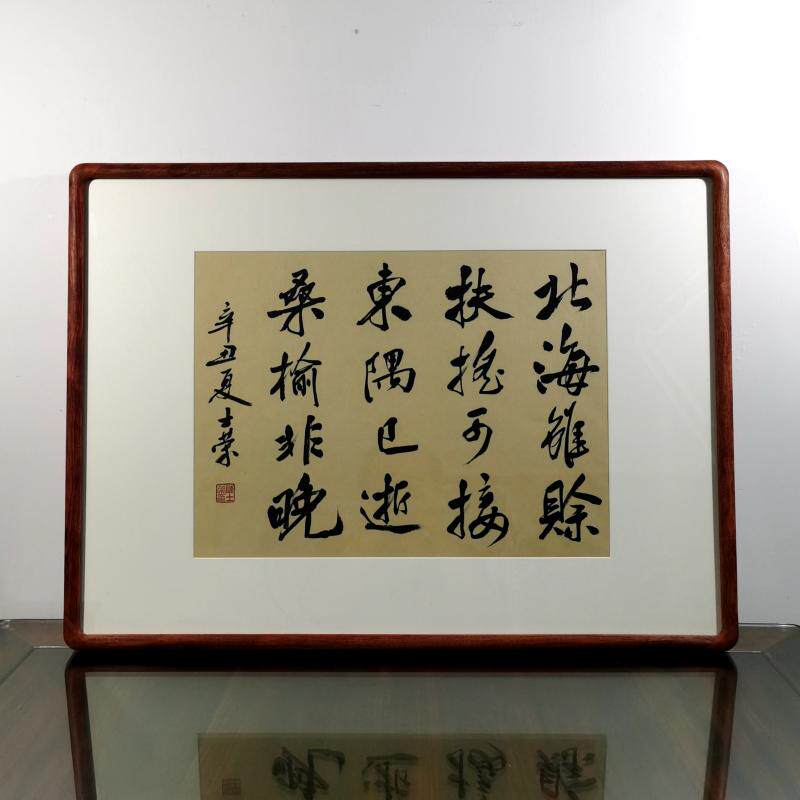 北海雖賒
扶搖可接
東隅已逝
桑榆非晚
辛丑夏士榮